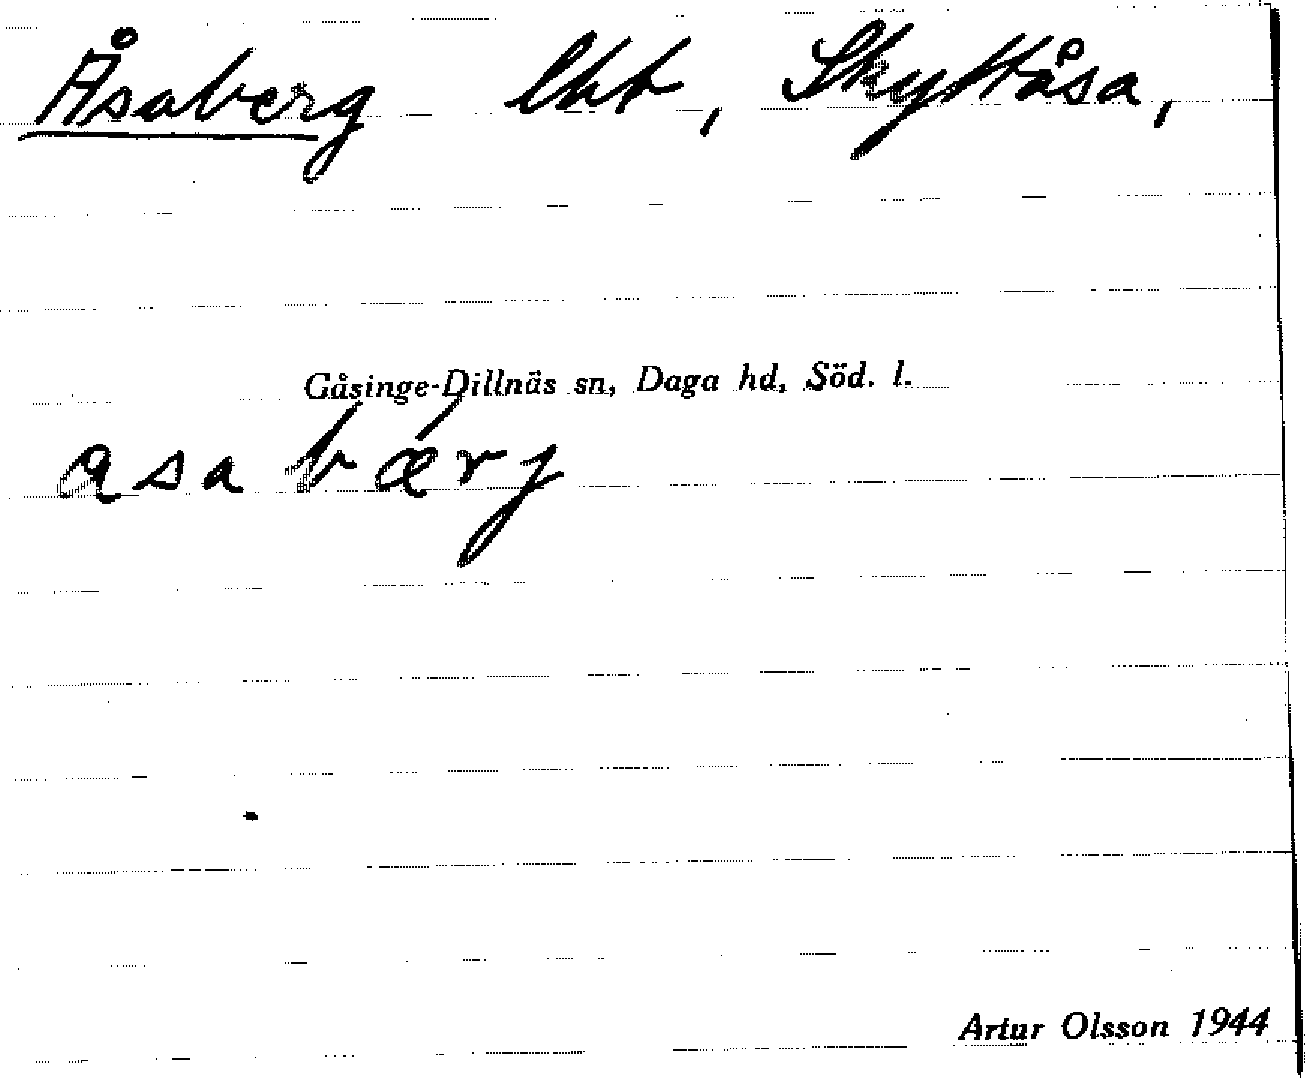 Åsaberg lht, Skyttåsa,
Gåsinge-Dillnäs sn, Daga hd, Söd. l.
asa bǽrj
Artur Olsson 1944